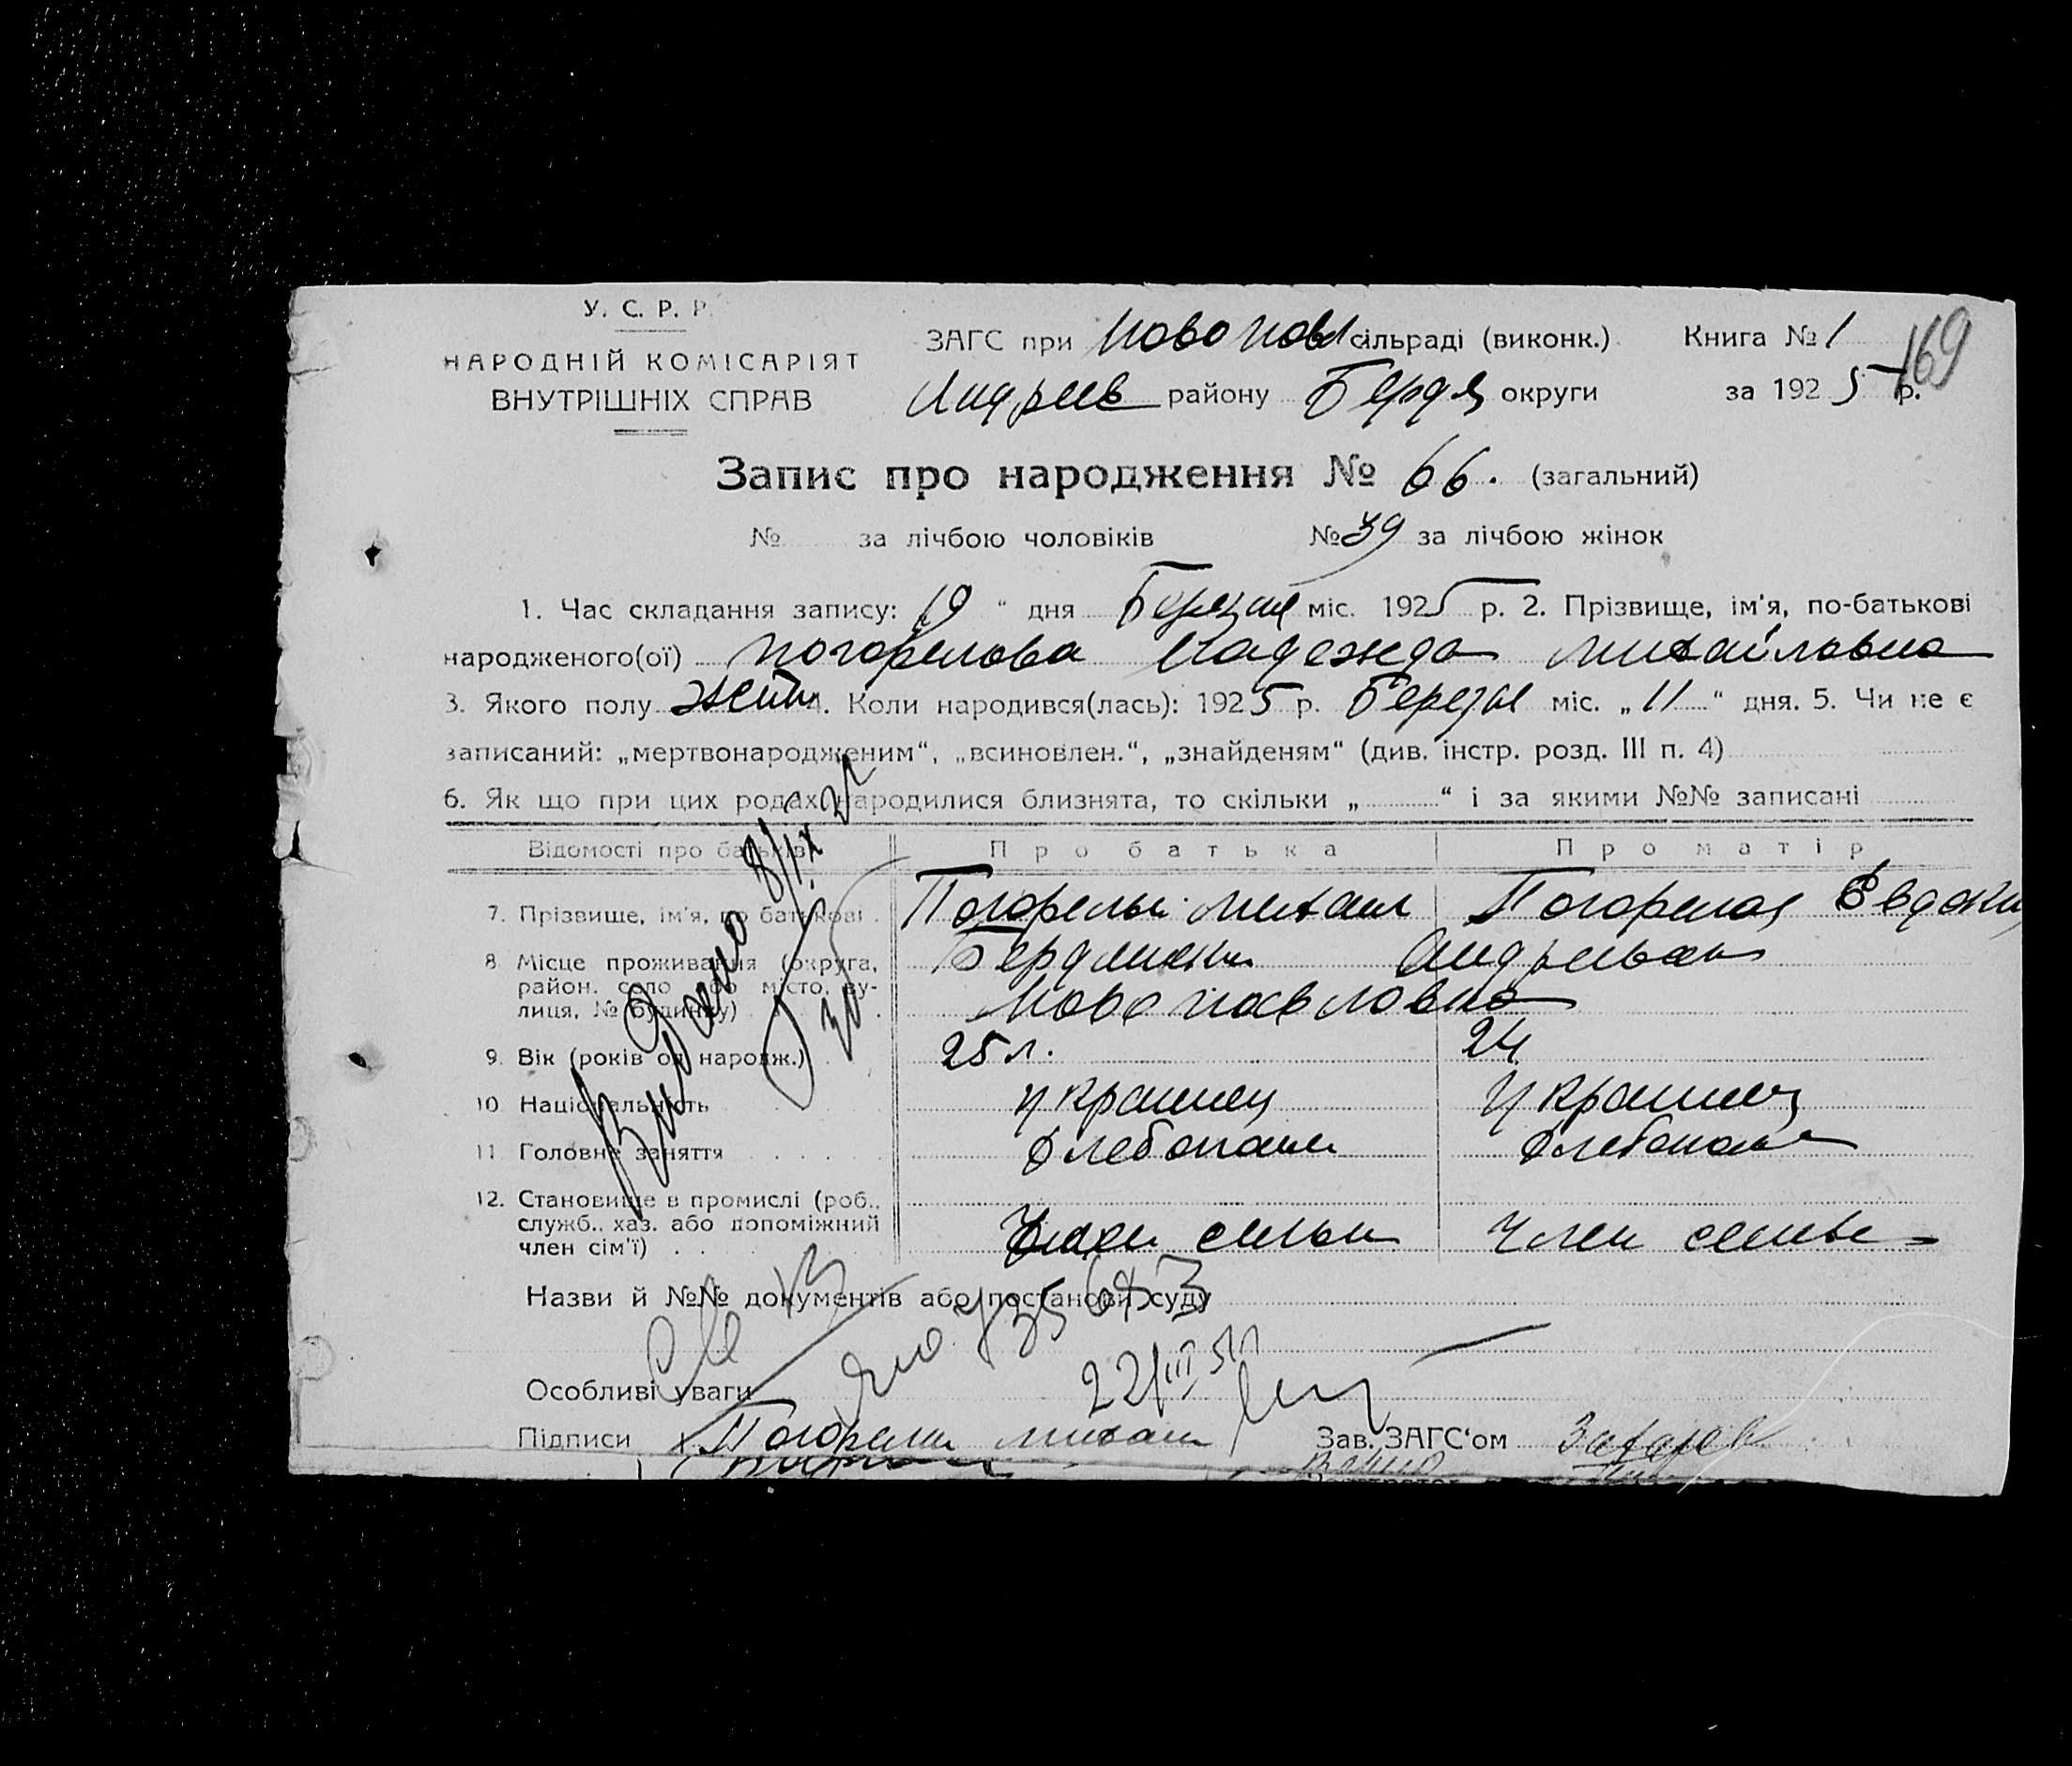 У. С. Р. Р.
НАРОДНІЙ КОМІСАРІЯТ
ВНУТРІШНІХ СПРАВ
ЗАГС при Новопавл сільраді (виконк.) Книга № 1
169
Андреев району Бердя округи за 1925 р.
Запис про народження № 66. (загальний)
№ за лічбою чоловіків № 39 за лічбою жінок
1. Час складання запису: 19 " дня Березня міс. 1925 р. 2. Прізвище, ім'я, по-батькові
народженого(ої) Погорелова Надежда Михайловна
3. Якого полу жен 4. Коли народився(лась): 1925 р. Березня міс. „ 11 " дня. 5. Чи не є
записаний: „мертвонародженим", „всиновлен.", „знайденям" (див. інстр. розд. III п. 4)
6. Як що при цих родах народилися близнята, то скільки „ " і за якими №№ записані
Відомості про батьків Про батька Про матір
7. Прізвище, ім'я, по батькові Погорелый Михаил Погорелая Евдоки
8. Місце проживання (округа, район, село або місто, вулиця, № будинку) Бердянски Андреевск
Новопавловка
9. Вік (років од народж.) 25 л. 24
10. Національність Украинец Украинец
11. Головне заняття Хлебопаш Хлебопаш
12. Становище в промислі (роб., служб., хаз. або допоміжний член сім'ї) Член семьи Член семье
Видано 8/IX
Назви й №№ документів або постанови суду
22/III
Особливі уваги
Підписи Погорелы Михаил Зав. ЗАГС'ом